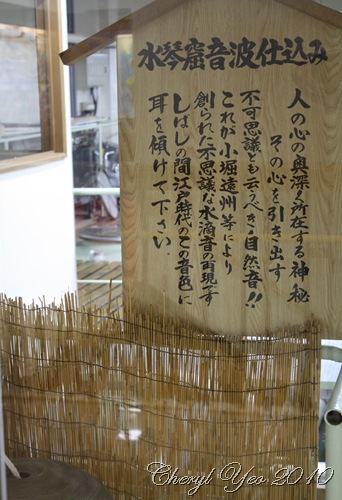 水琴窟音波仕込み
人の心の奥深く所在する神秘
その心を引き出す
不可思議とも云うべき自然音!!
これが小堀遠州等により
創られた不思議な水滴音の再現です
しばしの間江戸時代のこの音色に
耳を傾けて下さい.
Cheryl Yeo 2010